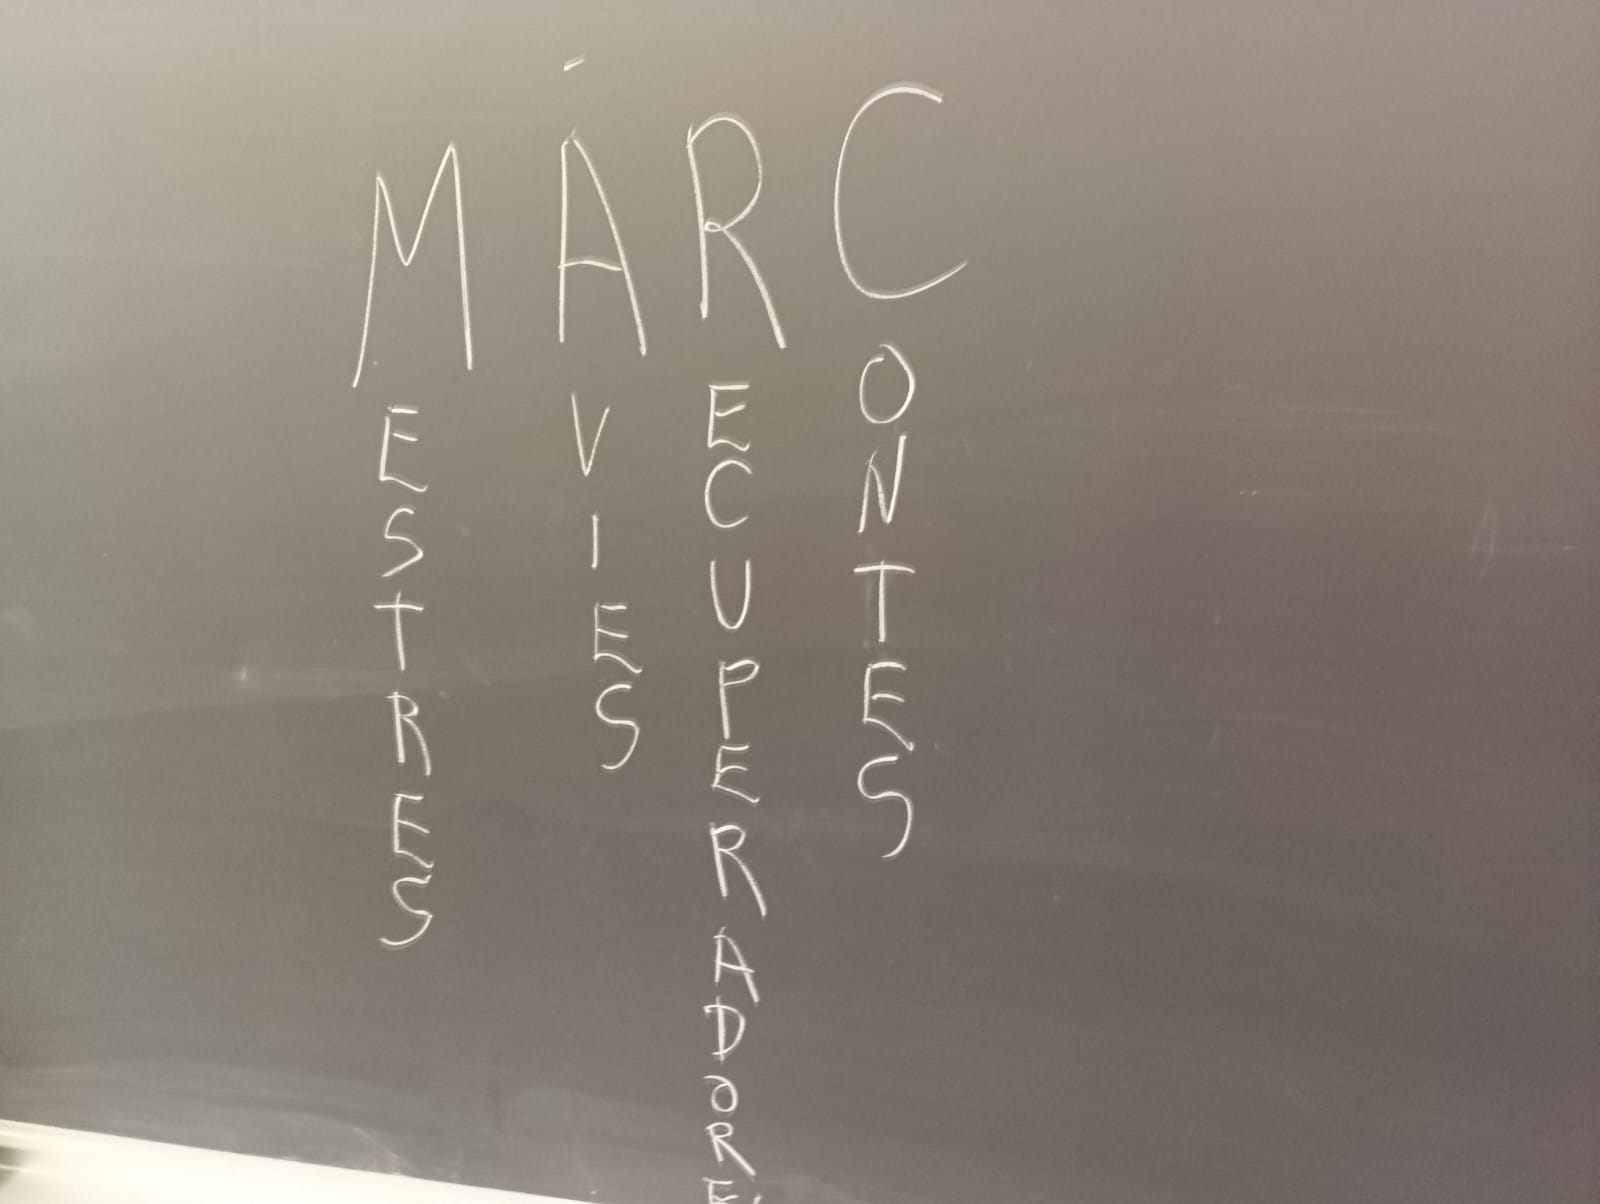 MÀRC
MESTRES
ÀVIES
RECUPERADORE
CONTES